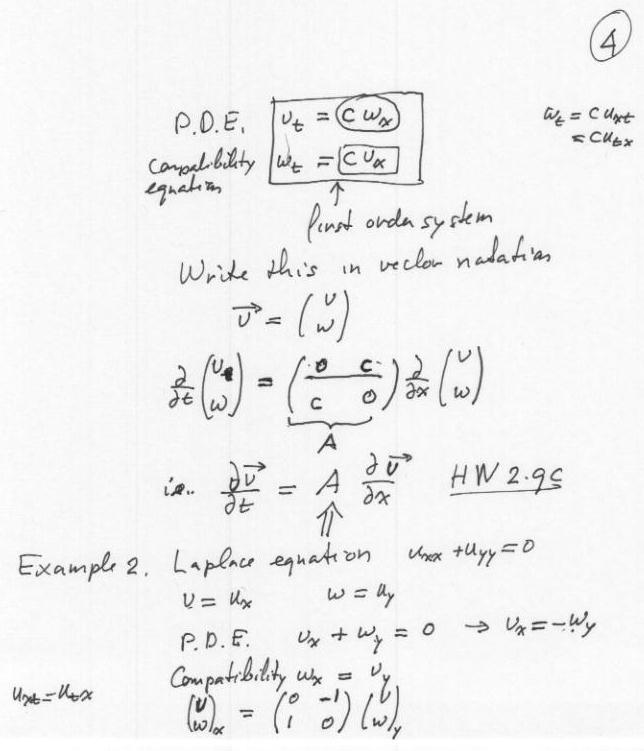 4
P.D.E. v_t = c w_x
w_t = c u_xt
= c u_tx
Compatibility equation w_t = c v_x
first order system
Write this in vector notation
\vec{v} = (v w)
∂/∂t (v w) = (0 c; c 0) ∂/∂x (v w)
A
i.e. ∂\vec{v}/∂t = A ∂\vec{v}/∂x HW 2.9c
Example 2. Laplace equation u_xx + u_yy = 0
v = u_x w = u_y
P.D.E. v_x + w_y = 0 → v_x = -w_y
Compatibility w_x = v_y
u_xt = u_tx
(v w)_x = (0 -1; 1 0) (v w)_y